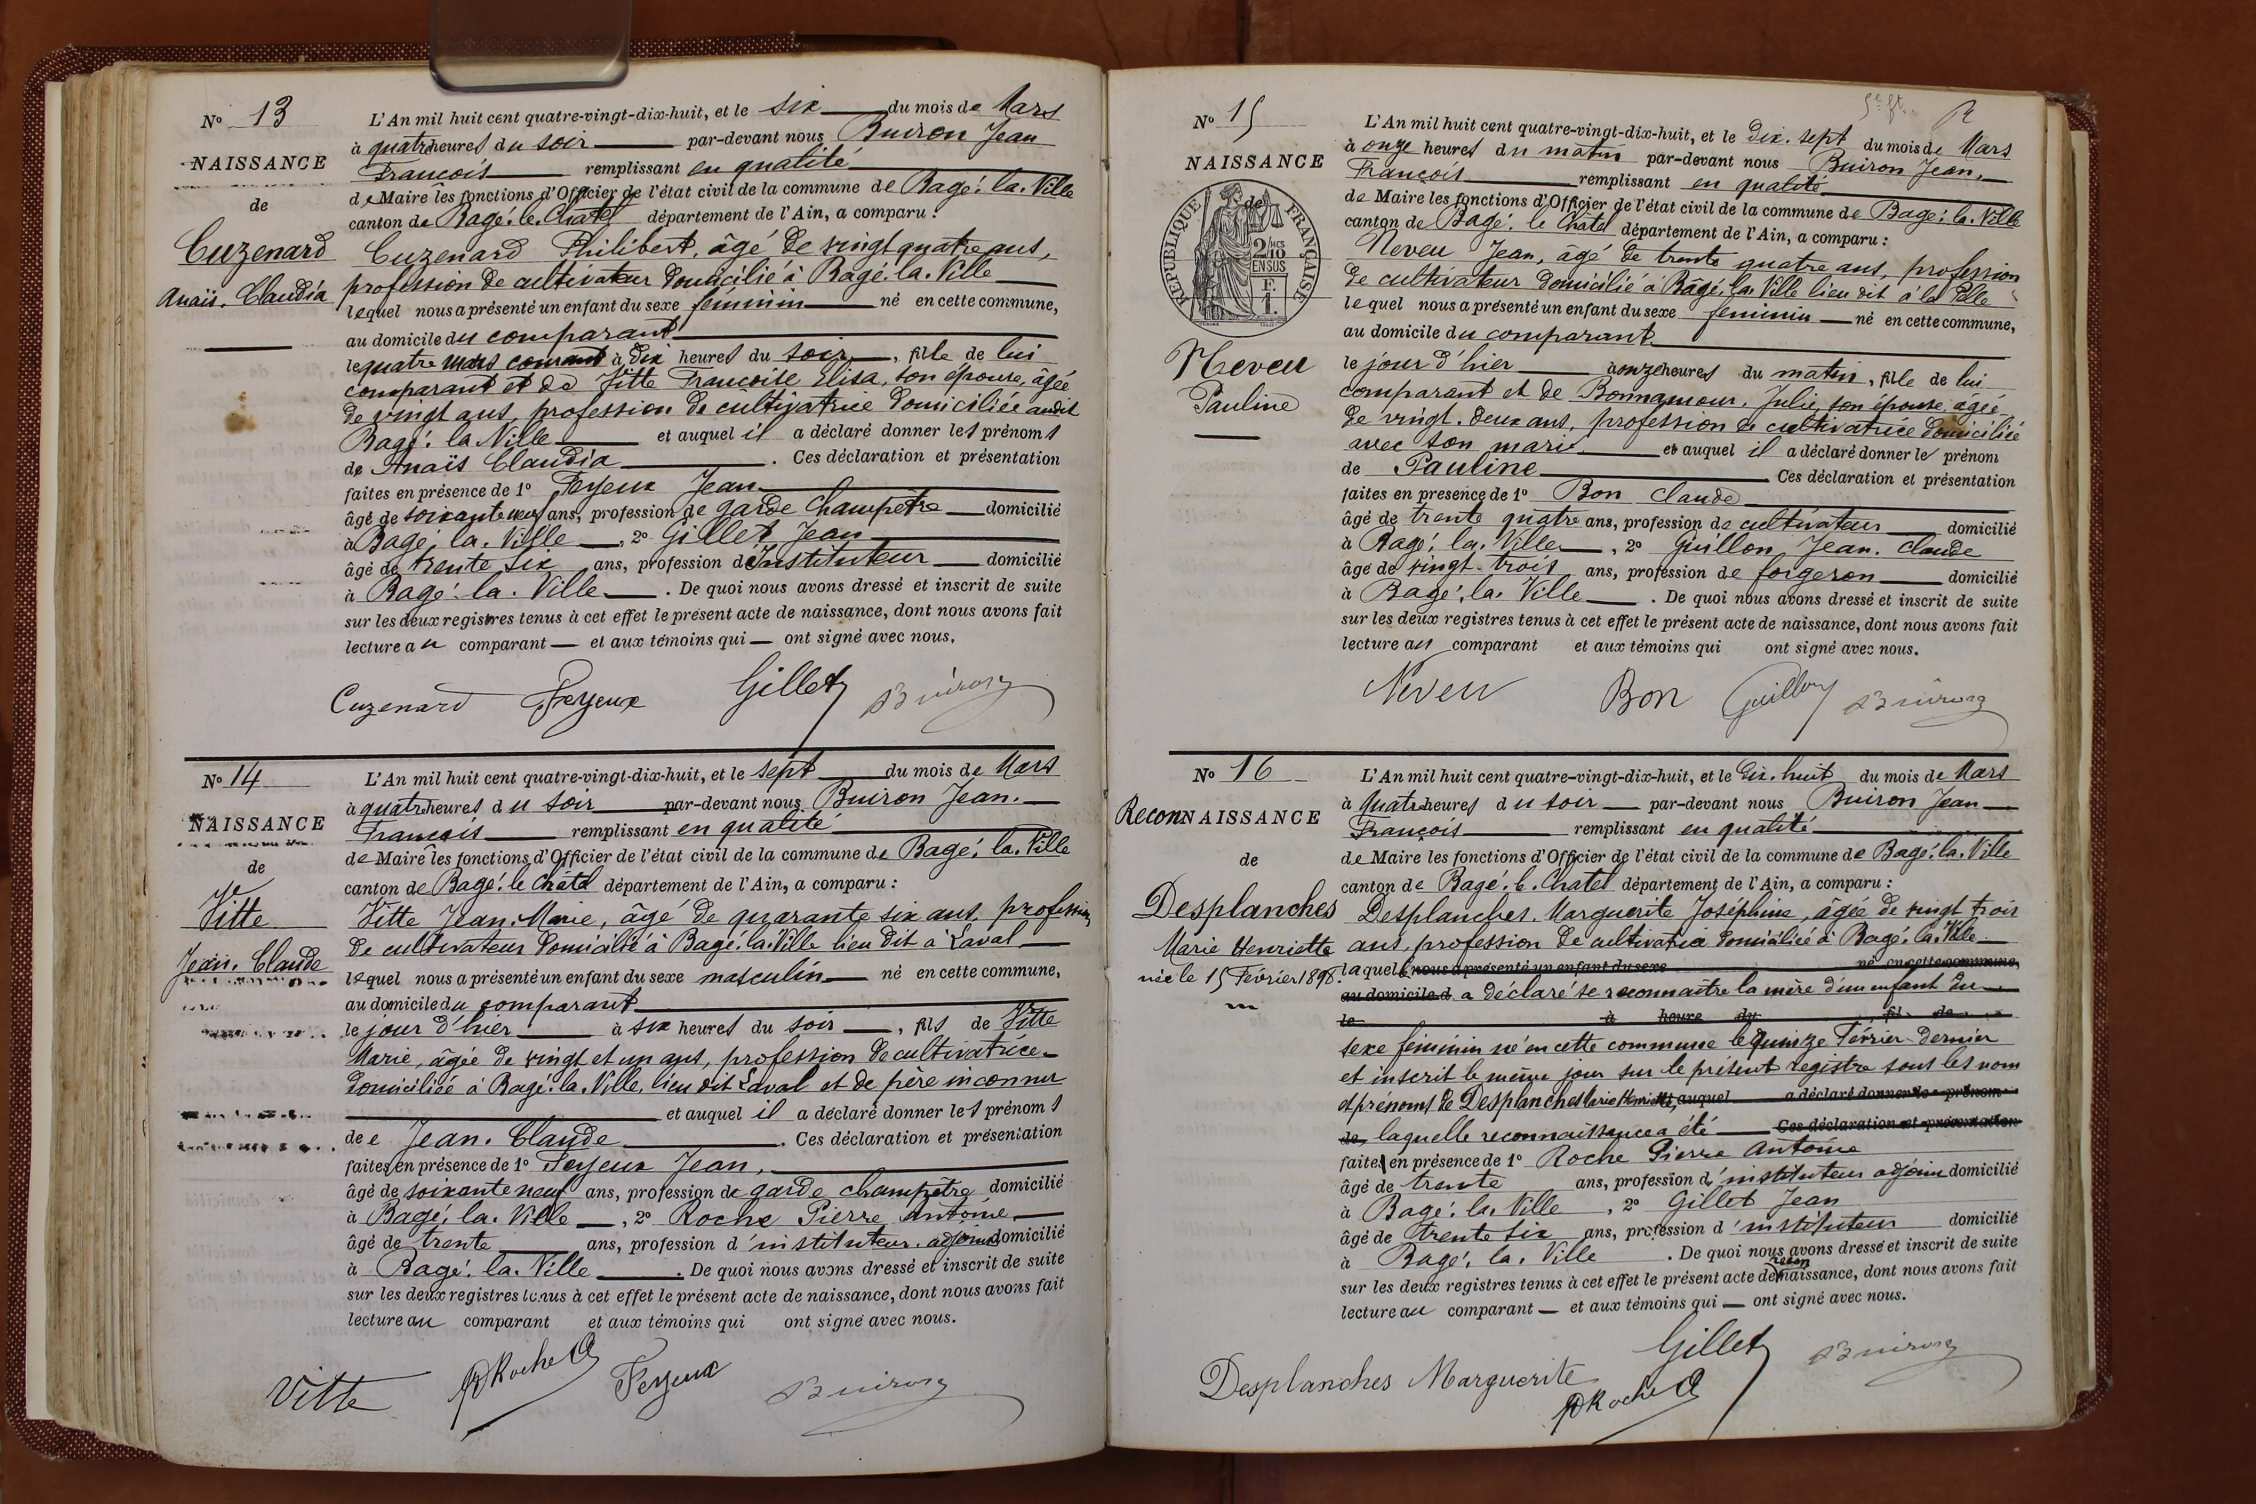 No 13
NAISSANCE
de
Cuzenard
Anaïs. Claudia
L'An mil huit cent quatre-vingt-dix-huit, et le six du mois de Mars
à quatre heures du soir par-devant nous Buiron Jean
François remplissant en qualité
de Maire les fonctions d'Officier de l'état civil de la commune de Bagé. la. Ville
canton de Bagé. le. Chatel département de l'Ain, a comparu :
Cuzenard Philibert, âgé de vingt quatre ans,
profession de cultivateur domicilié à Bagé. la. Ville
lequel nous a présenté un enfant du sexe féminin né en cette commune,
au domicile du comparant
le quatre mars courant à dix heures du soir, fille de lui
comparant et de Vitte Françoise Elisa, son épouse, âgée
de vingt ans, profession de cultivatrice domiciliée audit
Bagé. la Ville et auquel il a déclaré donner les prénoms
de Anaïs Claudia. Ces déclaration et présentation
faites en présence de 1o Feyeux Jean
âgé de soixante neuf ans, profession de garde champêtre domicilié
à Bagé. la. Ville, 2o Gillet Jean
âgé de trente six ans, profession d'Instituteur domicilié
à Bagé. la. Ville. De quoi nous avons dressé et inscrit de suite
sur les deux registres tenus à cet effet le présent acte de naissance, dont nous avons fait
lecture au comparant et aux témoins qui ont signé avec nous.
Cuzenard Feyeux Gillet Buiron
No 14
NAISSANCE
de
Vitte
Jean. Claude
L'An mil huit cent quatre-vingt-dix-huit, et le sept du mois de Mars
à quatre heures du soir par-devant nous Buiron Jean.
François remplissant en qualité
de Maire les fonctions d'Officier de l'état civil de la commune de Bagé. la. Ville
canton de Bagé. le Chatel département de l'Ain, a comparu :
Vitte Jean. Marie, âgé de quarante six ans, profession
de cultivateur domicilié à Bagé. la. Ville lieu dit à Laval
lequel nous a présenté un enfant du sexe masculin né en cette commune,
au domicile du comparant
le jour d'hier à six heures du soir, fils de Vitte
Marie, âgée de vingt et un ans, profession de cultivatrice
domiciliée à Bagé. la. Ville, lieu dit Laval et de père inconnu
et auquel il a déclaré donner les prénoms
de Jean. Claude. Ces déclaration et présentation
faites en présence de 1o Feyeux Jean,
âgé de soixante neuf ans, profession de garde champêtre domicilié
à Bagé. la. Ville, 2o Roche Pierre Antoine
âgé de trente ans, profession d'instituteur. adjoint domicilié
à Bagé. la. Ville. De quoi nous avons dressé et inscrit de suite
sur les deux registres tenus à cet effet le présent acte de naissance, dont nous avons fait
lecture au comparant et aux témoins qui ont signé avec nous.
Vitte Roche Feyeux Buiron
No 15
NAISSANCE
de
RÉPUBLIQUE FRANÇAISE
2/10
EN SUS
F.
1.
Neveu
Pauline
L'An mil huit cent quatre-vingt-dix-huit, et le dix. sept du mois de Mars
à onze heures du matin par-devant nous Buiron Jean.
François remplissant en qualité
de Maire les fonctions d'Officier de l'état civil de la commune de Bagé. la. Ville
canton de Bagé. le Chatel département de l'Ain, a comparu :
Neveu Jean, âgé de trente quatre ans, profession
de cultivateur domicilié à Bâgé. la. Ville lieu dit à la
lequel nous a présenté un enfant du sexe féminin né en cette commune,
au domicile du comparant
le jour d'hier à onze heures du matin, fille de lui
comparant et de Bonnamour. Julie, son épouse, âgée
de vingt. deux ans, profession de cultivatrice domiciliée
avec son mari et auquel il a déclaré donner le prénom
de Pauline Ces déclaration et présentation
faites en présence de 1o Bon Claude
âgé de trente quatre ans, profession de cultivateur domicilié
à Bagé. la. Ville, 2o Guillon Jean. Claude
âgé de vingt. trois ans, profession de forgeron domicilié
à Bagé. la. Ville. De quoi nous avons dressé et inscrit de suite
sur les deux registres tenus à cet effet le présent acte de naissance, dont nous avons fait
lecture au comparant et aux témoins qui ont signé avec nous.
Neveu Bon Guillon Buiron
No 16
ReconNAISSANCE
de
Desplanches
Marie Henriette
née le 15 Février 1898.
L'An mil huit cent quatre-vingt-dix-huit, et le dix. huit du mois de Mars
à quatre heures du soir par-devant nous Buiron Jean
François remplissant en qualité
de Maire les fonctions d'Officier de l'état civil de la commune de Bagé. la. Ville
canton de Bagé. le. Chatel département de l'Ain, a comparu :
Desplanches. Marguerite Joséphine, âgée de vingt trois
ans, profession de cultivatrice domiciliée à Bagé. la. Ville
laquelle nous a présenté un enfant du sexe né en cette commune,
au domicile d a déclaré se reconnaître la mère d'un enfant du
le à heure du fil de
sexe féminin né en cette commune le quinze Février dernier
et inscrit le même jour sur le présent registre sous les nom
et prénoms de Desplanches Marie Henriette, auquel a déclaré donner le prénom
de, laquelle reconnaissance a été Ces déclaration et présentation
faite en présence de 1o Roche Pierre Antoine
âgé de trente ans, profession d'instituteur adjoint domicilié
à Bagé. la. Ville, 2o Gillet Jean
âgé de trente six ans, profession d'instituteur domicilié
à Bagé. la. Ville. De quoi nous avons dressé et inscrit de suite
sur les deux registres tenus à cet effet le présent acte de reconnaissance, dont nous avons fait
lecture au comparant et aux témoins qui ont signé avec nous.
Desplanches Marguerite Roche Gillet Buiron